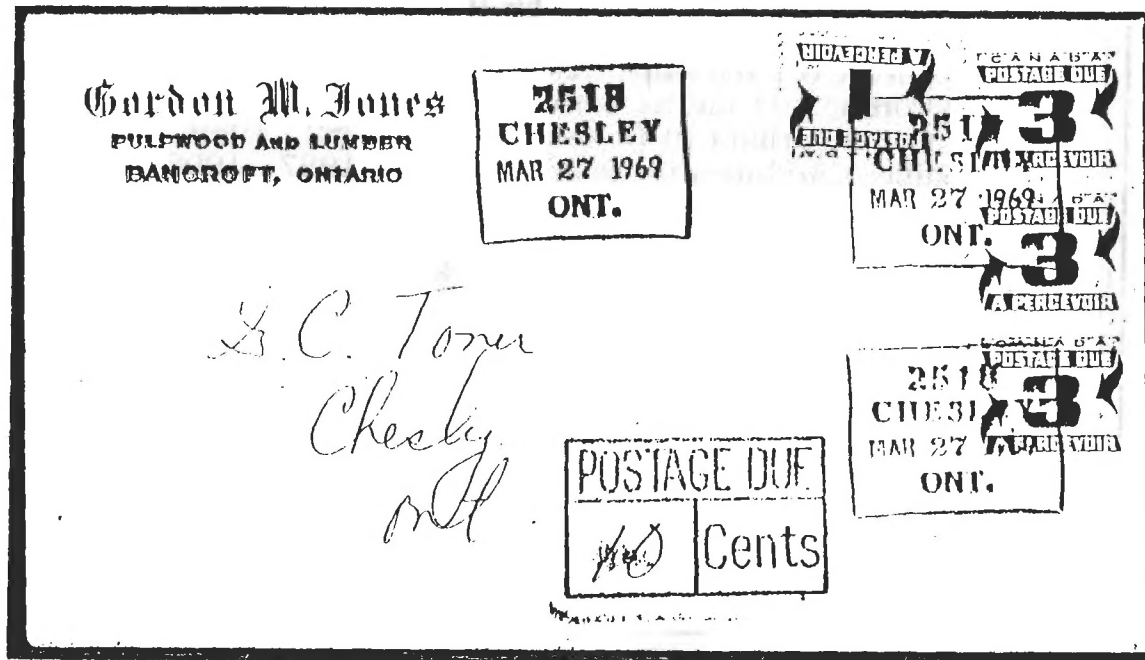 Gordon M. Jones
PULPWOOD AND LUMBER
BANCROFT, ONTARIO
2518
CHESLEY
MAR 27 1969
ONT.
A PERCEVOIR
1
POSTAGE DUE
CANADA
POSTAGE DUE
3
A PERCEVOIR
2518
CHESLEY
MAR 27 1969
ONT.
POSTAGE DUE
3
A PERCEVOIR
CANADA
POSTAGE DUE
3
A PERCEVOIR
2518
CHESLEY
MAR 27
ONT.
C. Toner
Chesley
Ont
POSTAGE DUE
Cents